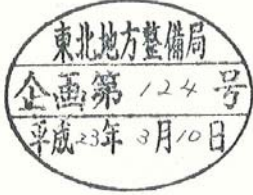 東北地方整備局
企画第124号
平成23年3月10日